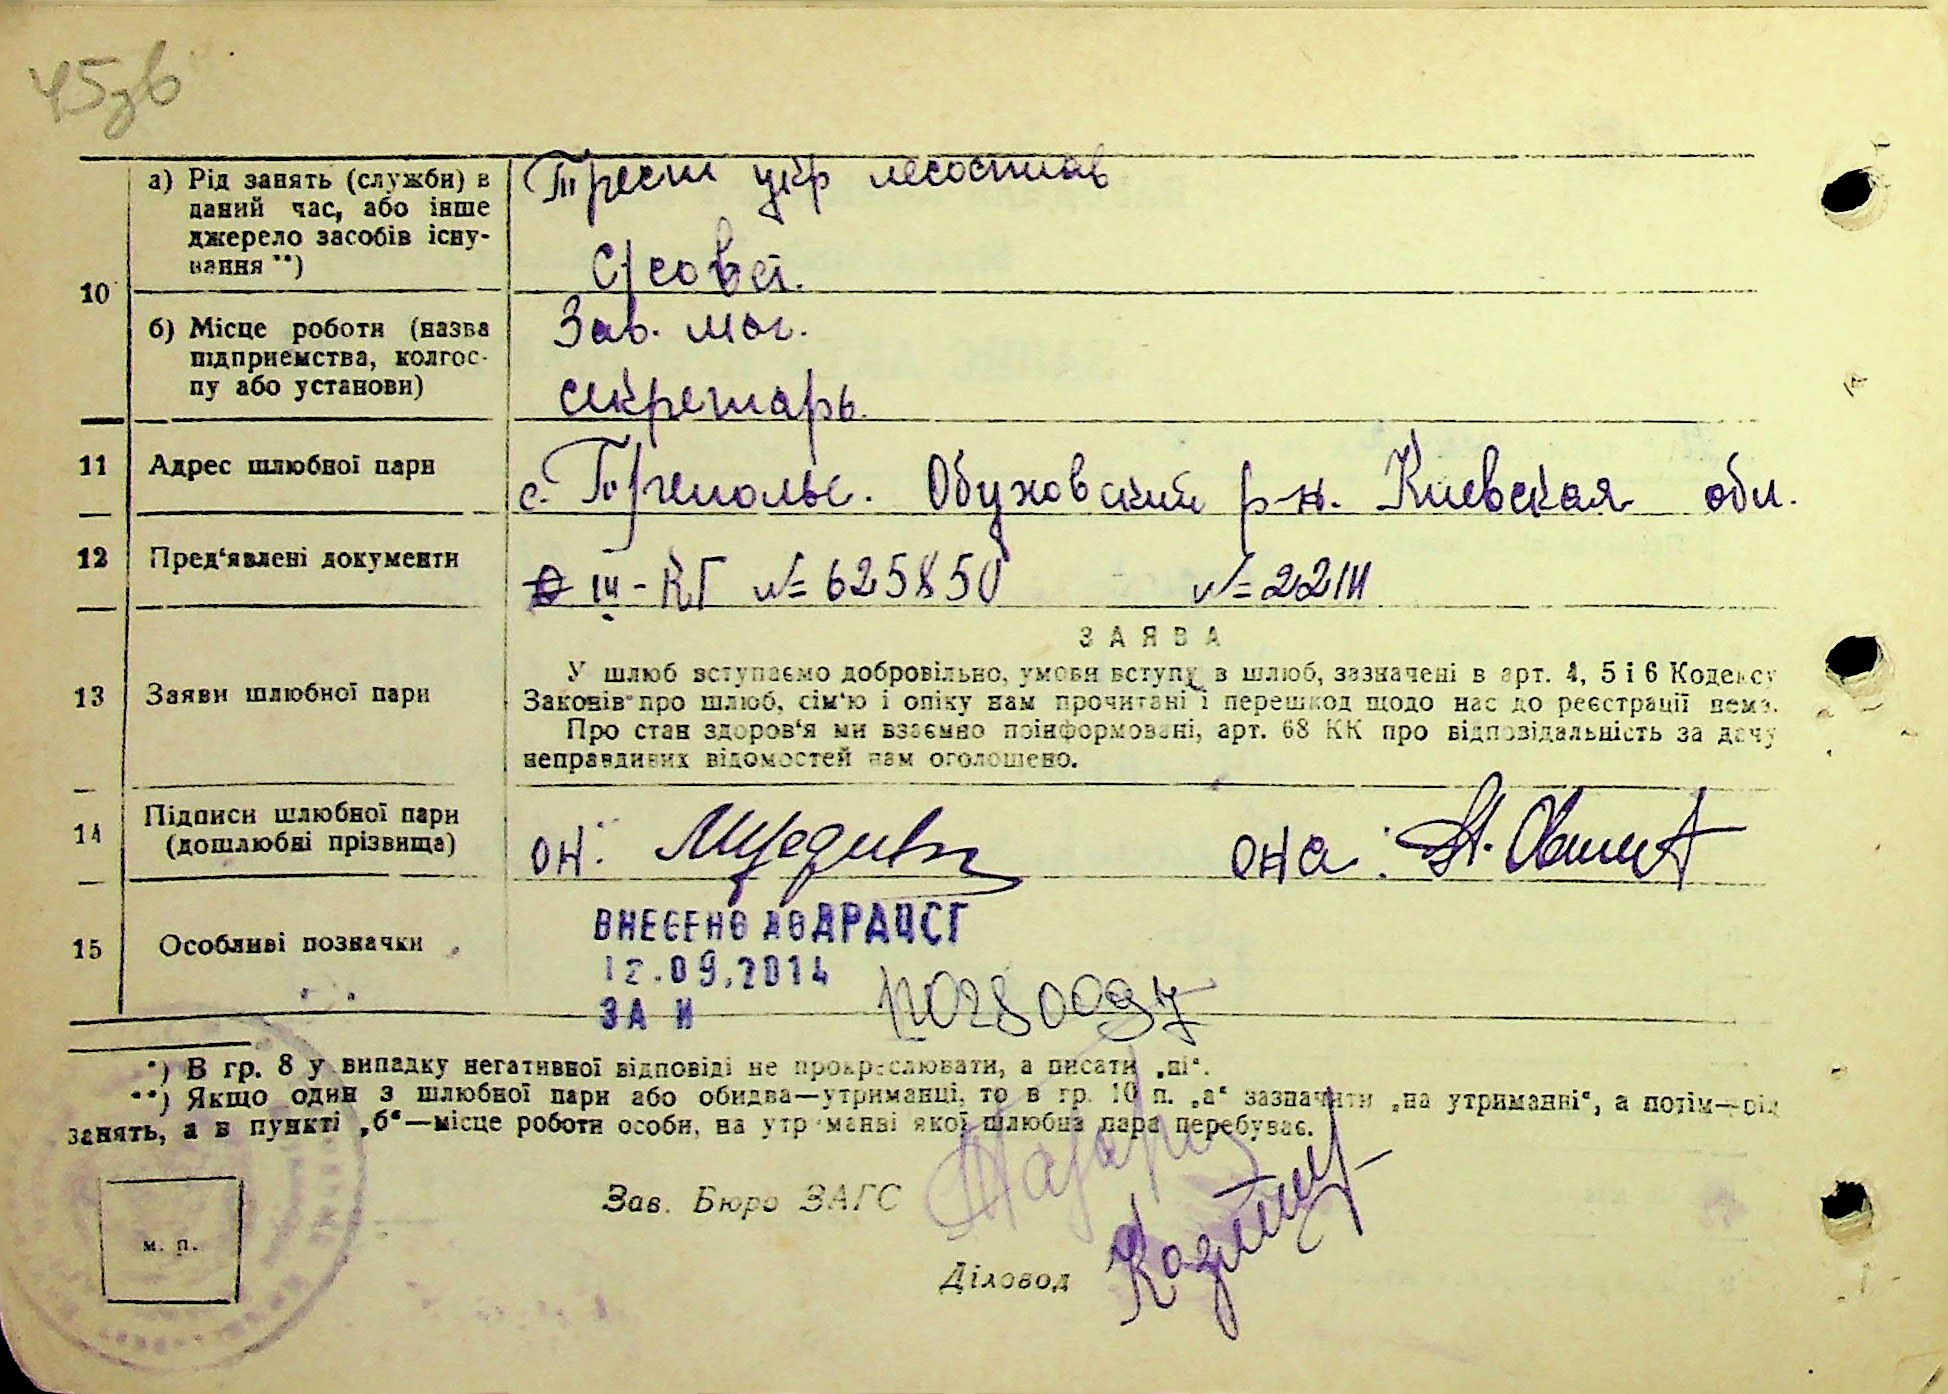 45зв
а) Рід занять (служби) в
даний час, або інше
джерело засобів існу-
вання **)
Трест укр лесостав
С/совет.
10
б) Місце роботи (назва
підприємства, колгос-
пу або установи)
Зав. маг.
секретарь.
11 Адрес шлюбної пари
с. Обуховский р-н. Киевская обл.
12 Пред'явлені документи
III-КГ №625850 №
ЗАЯВА
13 Заяви шлюбної пари
У шлюб вступаємо добровільно, умови вступу в шлюб, зазначені в арт. 4, 5 і 6 Кодексу
Законів про шлюб, сім'ю і опіку нам прочитані і перешкод щодо нас до реєстрації нема.
Про стан здоров'я ми взаємно поінформовані, арт. 68 КК про відповідальність за дачу
неправдивих відомостей нам оголошено.
14 Підписи шлюбної пари
(дошлюбні прізвища)
он: она:
15 Особливі позначки
ВНЕСЕНО ДО ДРАЦСГ
12.09.2014
ЗА N
*) В гр. 8 у випадку негативної відповіді не прокреслювати, а писати „ні".
**) Якщо один з шлюбної пари або обидва—утриманці, то в гр. 10 п. „а" зазначити „на утриманні", а потім—рід
занять, а в пункті „б"—місце роботи особи, на утриманні якої шлюбна пара перебуває.
Зав. Бюро ЗАГС
м. п.
Діловод